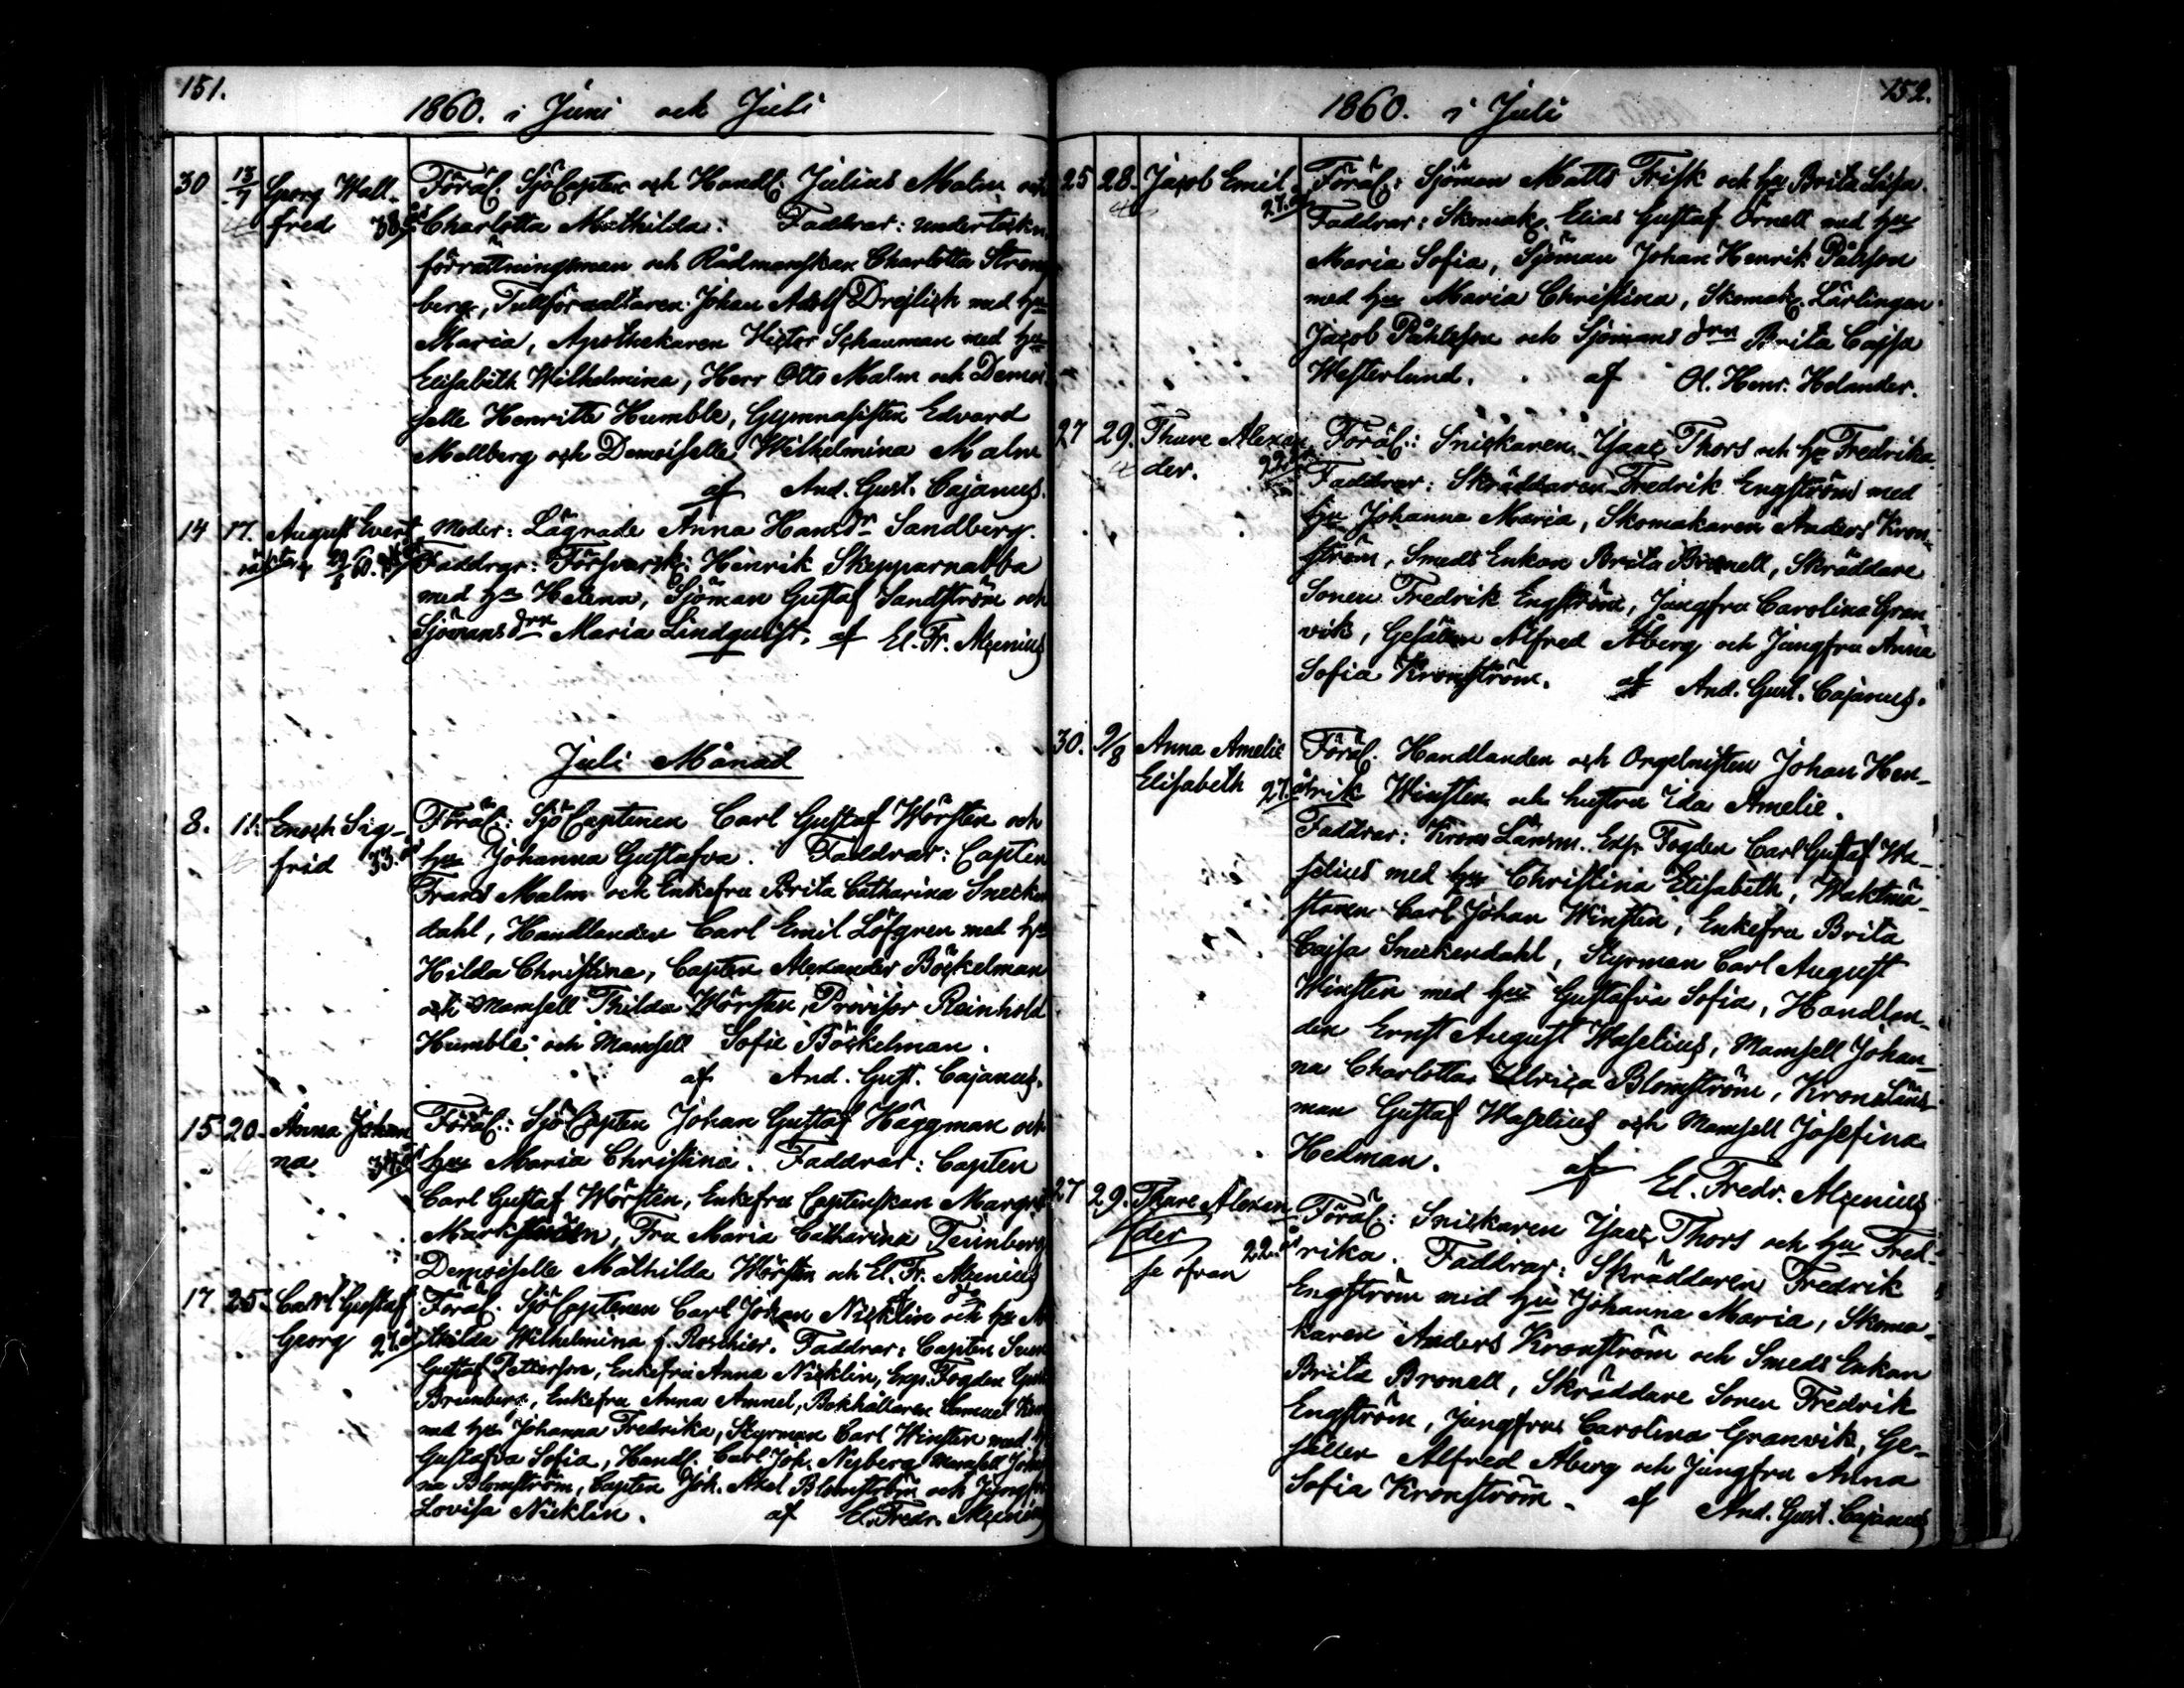 151.
1860. i Juni och Juli
30 13/7 Georg Wall- Föräl. SjöCapten och Handl. Julius Malm och
fred 38 år Charlotta Mathilda. Faddrar: undertekn.
förrättningsman och Rådmanskan Charlotta Streng
berg, Tullförvaltaren Johan Adolf Drejlich med hu
Maria, Apothekaren Victor Schauman med hu
Elisabeth Wilhelmina, Herr Otto Malm och Demoi
selle Henriette Humble, Gymnasisten Edvard
Mellberg och Demoiselle Wilhelmina Malm
af And. Gust. Cajanus.
14 17. August Evert Moder: Lägrade Anna Hansdr Sandberg.
Faddrar: Försvarsk: Henrik Skepparnabba
med hu Helena, Sjöman Gustaf Sandström och
Sjömans drn Maria Lindquist. af El. Fr. Alcenius
Juli Månad
8. 11. Enoch Sig- Föräl: SjöCaptenen Carl Gustaf Wörsten och
frid 33. år hu Johanna Gustafva. Faddrar: Capten
Frans Malm och Enkefru Brita Catharina Snecken
dahl, Handlanden Carl Emil Löfgren med hu
Hilda Christina, Capten Alexander Böckelman
och Mamsell Thilda Wörsten, Provisor Reinhold
Humble och Mamsell Sofie Böckelman.
af And. Gust. Cajanus.
15 20. Anna Johan Föräl.: SjöCapten Johan Gustaf Häggman och
na 34. år hu Maria Christina. Faddrar: Capten
Carl Gustaf Wörsten, Enkefru Captenskan Margret
Fru Maria Catharina
Demoiselle Mathilda Wörsten och El. Fr. Alcenius
17. 25. Carl Gustaf Föräl. SjöCaptenen Carl Johan Nicklin och hu
Georg 27. år thilda Wilhelmina f. Roschier. Faddrar: Capten
Gustaf Petterson, Enkefru Anna Nicklin, Exp. Fogden
Enkefru Anna Ammel, Bokhållaren Samuel
med hu Johanna Fredrika, Styrman Carl Winsten med
Gustafva Sofia, Handl. Carl Joh. Nyberg Mamsell
na Blomström, Capten Joh. Axel Blomström och Jungfru
Lovisa Nicklin. af El. Fredr. Alcenius
152.
1860. i Juli
25 28. Jacob Emil Föräl: Sjöman Matts Frisk och hu Brita Lisa.
27. år Faddrar: Skomak. Elias Gustaf Örnell med hu
Maria Sofia, Sjöman Johan Henrik Påhlson
med hu Maria Christina, Skomak. Lärlingen
Jacob Påhlsson och Sjömans drn Brita Cajsa
Westerlund. af Ol. Henr. Helander.
27 29. Thure Alexan Föräl: Snickaren Isaac Thors och hu Fredrika.
der. 22 år Faddrar: Skräddaren Fredrik Engström med
hu Johanna Maria, Skomakaren Anders Kron-
ström, Smeds Enkan Brita Bronell, Skräddare
Sonen Fredrik Engström, Jungfru Carolina Gran-
vik, Gesällen Alfred Åberg och Jungfru Anna
Sofia Kronström. af And. Gust. Cajanus.
30. 9/8 Anna Amelie Föräl. Handlanden och Orgelnisten Johan Hen-
Elisabeth 27. år rik Winsten och hustru Ida Amelie.
Faddrar: Krono Länsm. Exp. Fogden Carl Gustaf Wa-
selius med hu Christina Elisabeth, Waktmä-
staren Carl Johan Winsten, Enkefru Brita
Cajsa Sneckendahl, Styrman Carl August
Winsten med hu Gustafva Sofia, Handlan-
den Ernst August Waselius, Mamsell Johan-
na Charlotta Ulrica Blomström, Krono Läns-
man Gustaf Waselius och Mamsell Josefina
Hedman. af El. Fredr. Alcenius
27 29. Thure Alexan Föräl: Snickaren Isaac Thors och hu Fred-
der 22 år rika. Faddrar: Skräddaren Fredrik
se ofvan Engström med hu Johanna Maria, Skoma-
karen Anders Kronström och Smeds Enkan
Brita Bronell, Skräddare Sonen Fredrik
Engström, Jungfru Carolina Granvik, Ge-
sällen Alfred Åberg och Jungfru Anna
Sofia Kronström. af And. Gust. Cajanus